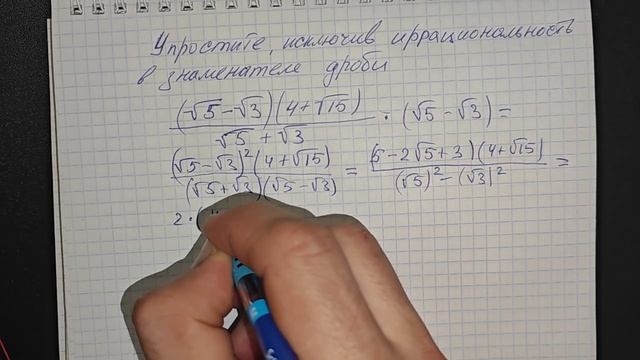 Упростите, исключив иррациональность
в знаменателе дроби
(√5-√3)(4+√15)
———————— · (√5-√3)=
√5+√3
(√5-√3)²(4+√15) = (5-2√5+3)(4+√15) =
(√5+√3)(√5-√3) (√5)²-(√3)²
2·(4